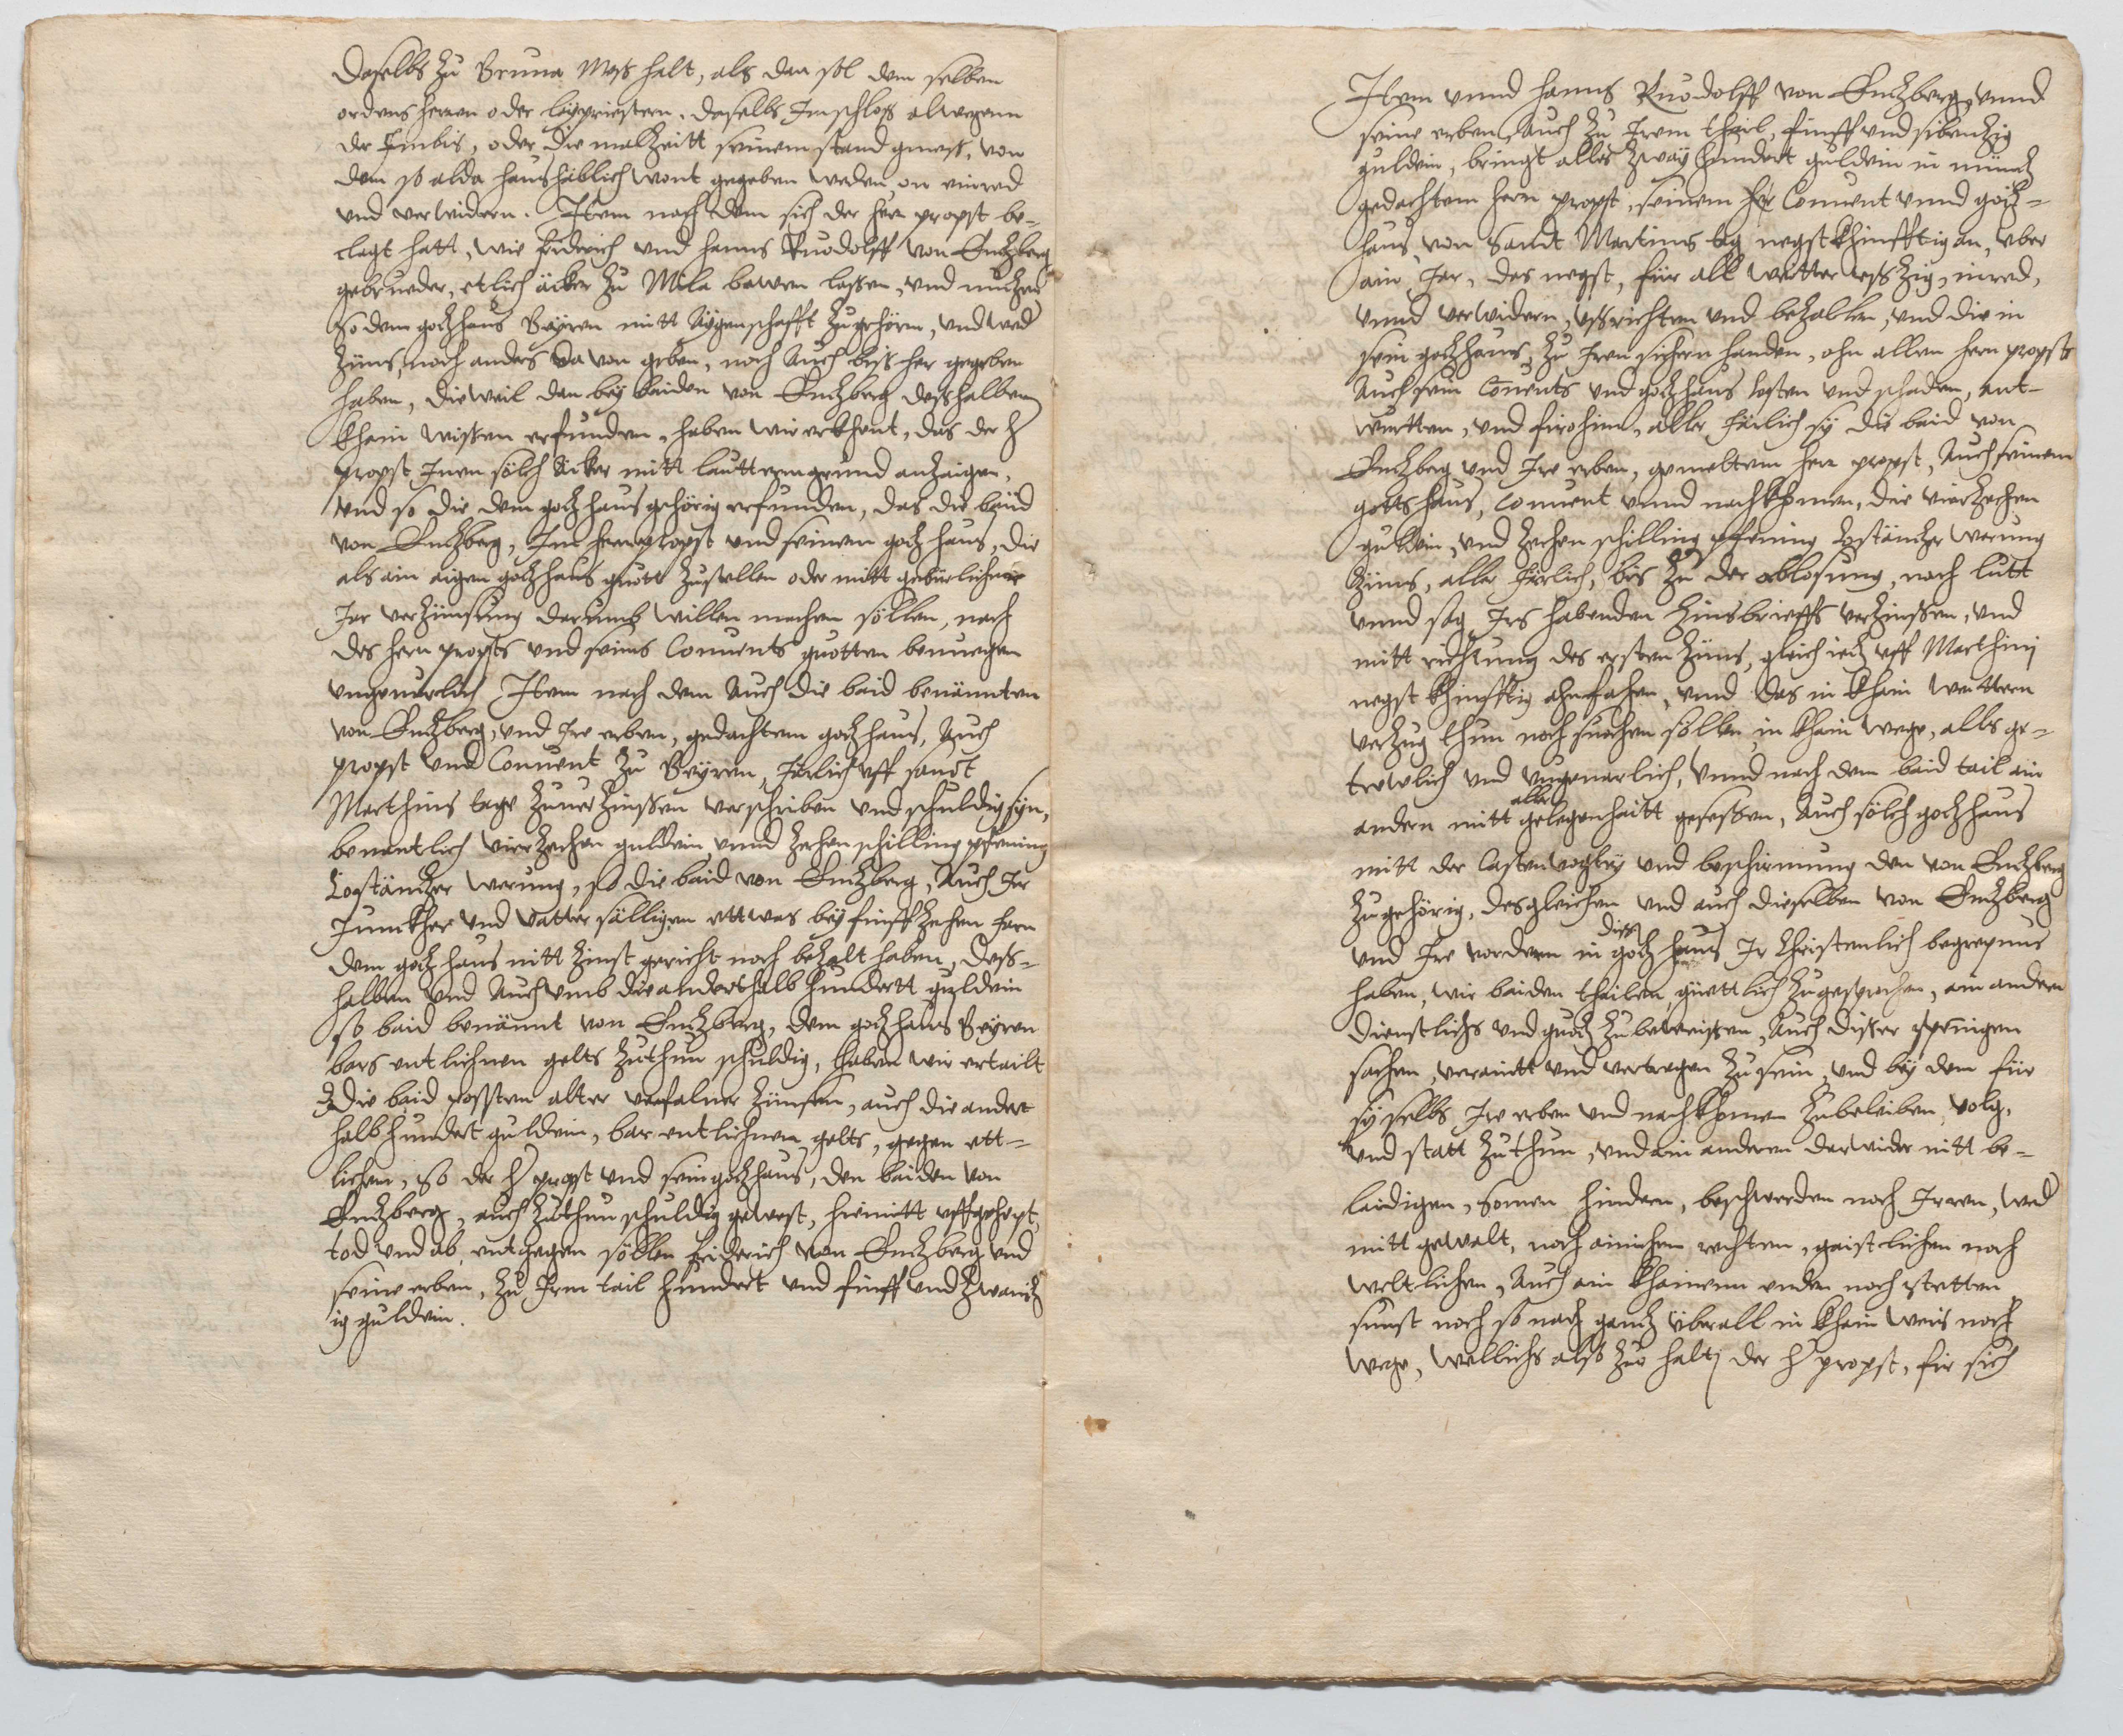 daselbs zu Brunna Mess halt, als dan sol dem selben
ordens herren oder laÿpriestern, daselbs Im schloss alwegenn
der Imbis, oder die malzeitt seinem stand gmess, von
dem so alda haushäblich wont gegeben werden, on einred
vnd verwidern. Item nach dem sich der herr propst be-
clagt hatt, wie friderich vnd hanns Ruodolff von Entzberg
gebrueder, etlich äcker zu Mila bawen lassen, vnd nutzen
so dem gotzhaus Beÿren mitt Aÿgenschafft zugehörn, vnd wed
Zinns, noch anders da von geben, noch Auch biss her gegeben
haben, die weil dan beÿ baiden von Entzberg desshalben
khain wissen erfunden, haben wir erkhent, das der h
propst Inen sölch Äcker mitt lautterm grund anzaigen,
vnd so die dem gotzhaus gehörig erfunden, das die baid
von Entzberg, Im herr propst vnd seinem gotzhaus, die
als ain aigen gotzhaus guott zustellen oder mitt gebürlicher
Jar verzinnsung darumb willen machen söllen, nach
des hern propsts vnd seins Conuents guotten benuegen
vngeuarlich Item nach dem Auch die baid benännten
von Entzberg, vnd Ire erben, gedachtem gotzhaus, Auch
propst vnd Conuent zu Beÿren, Järlich vff sandt
Marthins tage zuuerzinssen verschriben vnd schuldig sÿn,
benantlich vierzechen guldein vnnd zechen schilling pfening
Costäntzer werung, so die baid von Entzberg, Auch Ir
Junckher vnd vatter sälligen ettwas beÿ finffzechen Jarn
dem gotzhaus nitt Zinst gericht noch bezalt haben, dess-
halben vnd Auch vmb die anderthalb hundertt guldein
so baid benännt von Entzberg, dem gotzhaus Beÿren
bars entlichnen gelts zuthun schuldig, haben wir ertailt
das die baid posten alter verfalner Zinnsen, auch die andert
halbhundert guldein, bar entlichnen gelts, gegen ett-
lichem, so der h propst vnd sein gotzhaus, den baiden von
Entzberg, auch zuthun schuldig gewest, hiemitt vffgehept,
tod vnd ab, entgegen söllen friderich von Entzberg vnd
seine erben, zu Irem tail hundert vnd finff vnd zwantz
ig guldein.
Item vnnd hanns Ruodolff von Entzberg, vnnd
seine erben, Auch zu Irem thail, finff vnd sibenzig
guldein, bringt alles zwaÿhundert guldein in müntz
gedachtem hern propst, seinem Conuent vnnd gotz-
haus, von Sandt Martins tag negstkhinfftig an, vber
ain Jar, das negst, für all weitter, inred,
vnnd verwidern, vssrichten vnd bezallen, vnd die in
sein gotzhaus, zu Iren sichern handen, ohn allen hern propsts
Auch sein Conuents vnd gotzhaus costen vnd schaden, ant-
wurtten, vnd firohin, aller Järlich sÿ die baid von
Entzberg vnd Ire erben, gemeltem herr propst, Auch seinem
gottshaus, Conuent vnnd nachkhomen, die vierzechen
guldein, vnd zechen schilling pfening Costäntzer werung
Zinns, aller Järlich, bis zu der ablosung, nach lutt
vnnd sag Irs habenden Zinsbrieffs verzinssen, vnd
mitt richtung des ersten Zinns, gleich ietz vff Marthinj
negst khinfftig ahnfahen, vnnd das in khain weittern
verzug thun noch suochen söllen, in khain wege, alls ge-
trewlich vnd vngeuarlich, Vnnd nach dem baid tail ain
andern mitt aller gelegenhaitt gesessen, Auch sölch gotzhaus
mitt der Castenvogteÿ vnd beschirmung den von Entzberg
zugehörig, desgleichen vnd auch dieselben von Entzberg
vnd Ire vordern in diss gotzhaus Ir Christenlich begrepnus
haben, wir baiden thailen, güettlich zugesprochen, ain andern
dienstlichs vnd guotz zubeweissen, Auch disser spenigen
sachen, veraintt vnd vertragen zu sein, vnd beÿ dem für
sÿ selbs Ire erben vnd nachkhomen zubeleiben, volg,
vnd statt zuthun, vnd ain anderen darwider nitt be-
laidigen, somen hindern, beschwerden noch Irren, wed
mitt gewalt, noch ainichen rechten, gaistlichen noch
weltlichen, Auch an khainenn enden noch stetten
sunst noch so nach gantz überall in khain weis noch
wege, wellichs alss zuo halt der h propst, für sich